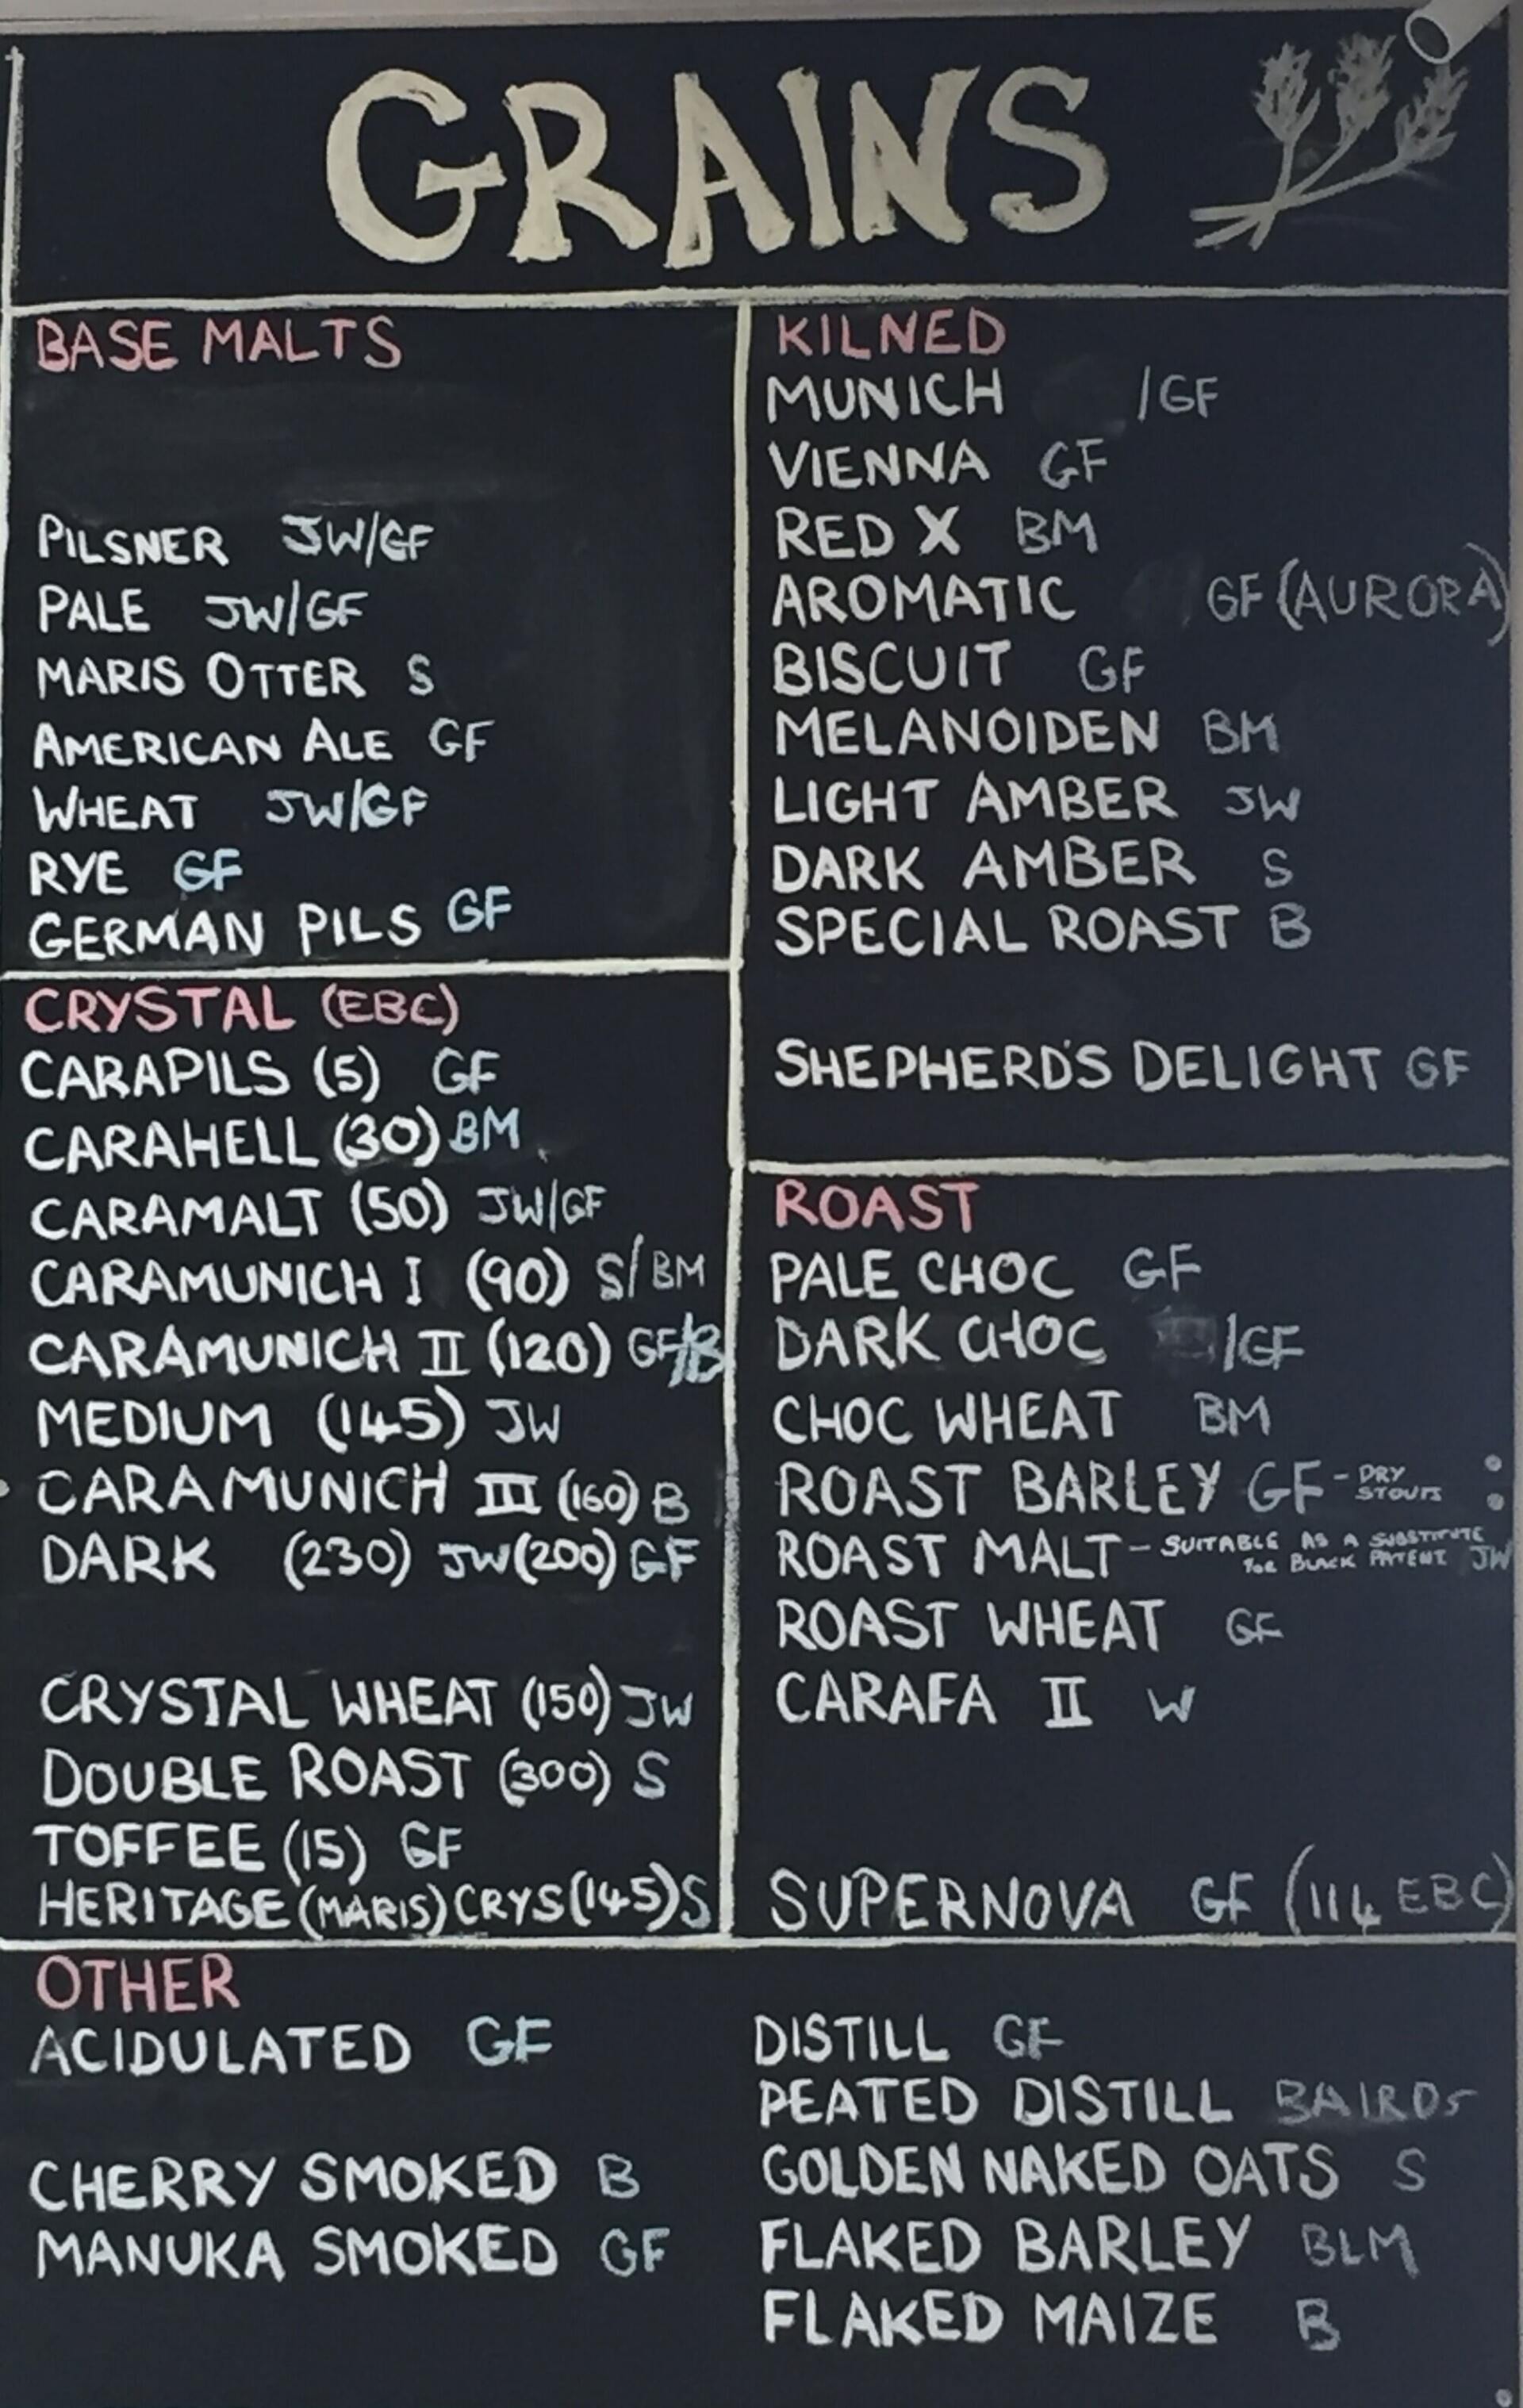 GRAINS
BASE MALTS
PILSNER JW/GF
PALE JW/GF
MARIS OTTER S
AMERICAN ALE GF
WHEAT JW/GF
RYE GF
GERMAN PILS GF
CRYSTAL (EBC)
CARAPILS (5) GF
CARAHELL (30) BM
CARAMALT (50) JW/GF
CARAMUNICH I (90) S/BM
CARAMUNICH II (120) GF/B
MEDIUM (145) JW
CARAMUNICH III (160) B
DARK (230) JW (200) GF
CRYSTAL WHEAT (150) JW
DOUBLE ROAST (300) S
TOFFEE (15) GF
HERITAGE (MARIS) CRYS (145) S
KILNED
MUNICH /GF
VIENNA GF
RED X BM
AROMATIC GF (AURORA)
BISCUIT GF
MELANOIDEN BM
LIGHT AMBER JW
DARK AMBER S
SPECIAL ROAST B
SHEPHERD'S DELIGHT GF
ROAST
PALE CHOC GF
DARK CHOC /GF
CHOC WHEAT BM
ROAST BARLEY GF - DRY
STOUTS
ROAST MALT - SUITABLE AS A SUBSTITUTE
FOR BLACK PATENT JW
ROAST WHEAT GF
CARAFA II W
SUPERNOVA GF (114 EBC)
OTHER
ACIDULATED GF
CHERRY SMOKED B
MANUKA SMOKED GF
DISTILL GF
PEATED DISTILL BAIRDS
GOLDEN NAKED OATS S
FLAKED BARLEY BLM
FLAKED MAIZE B